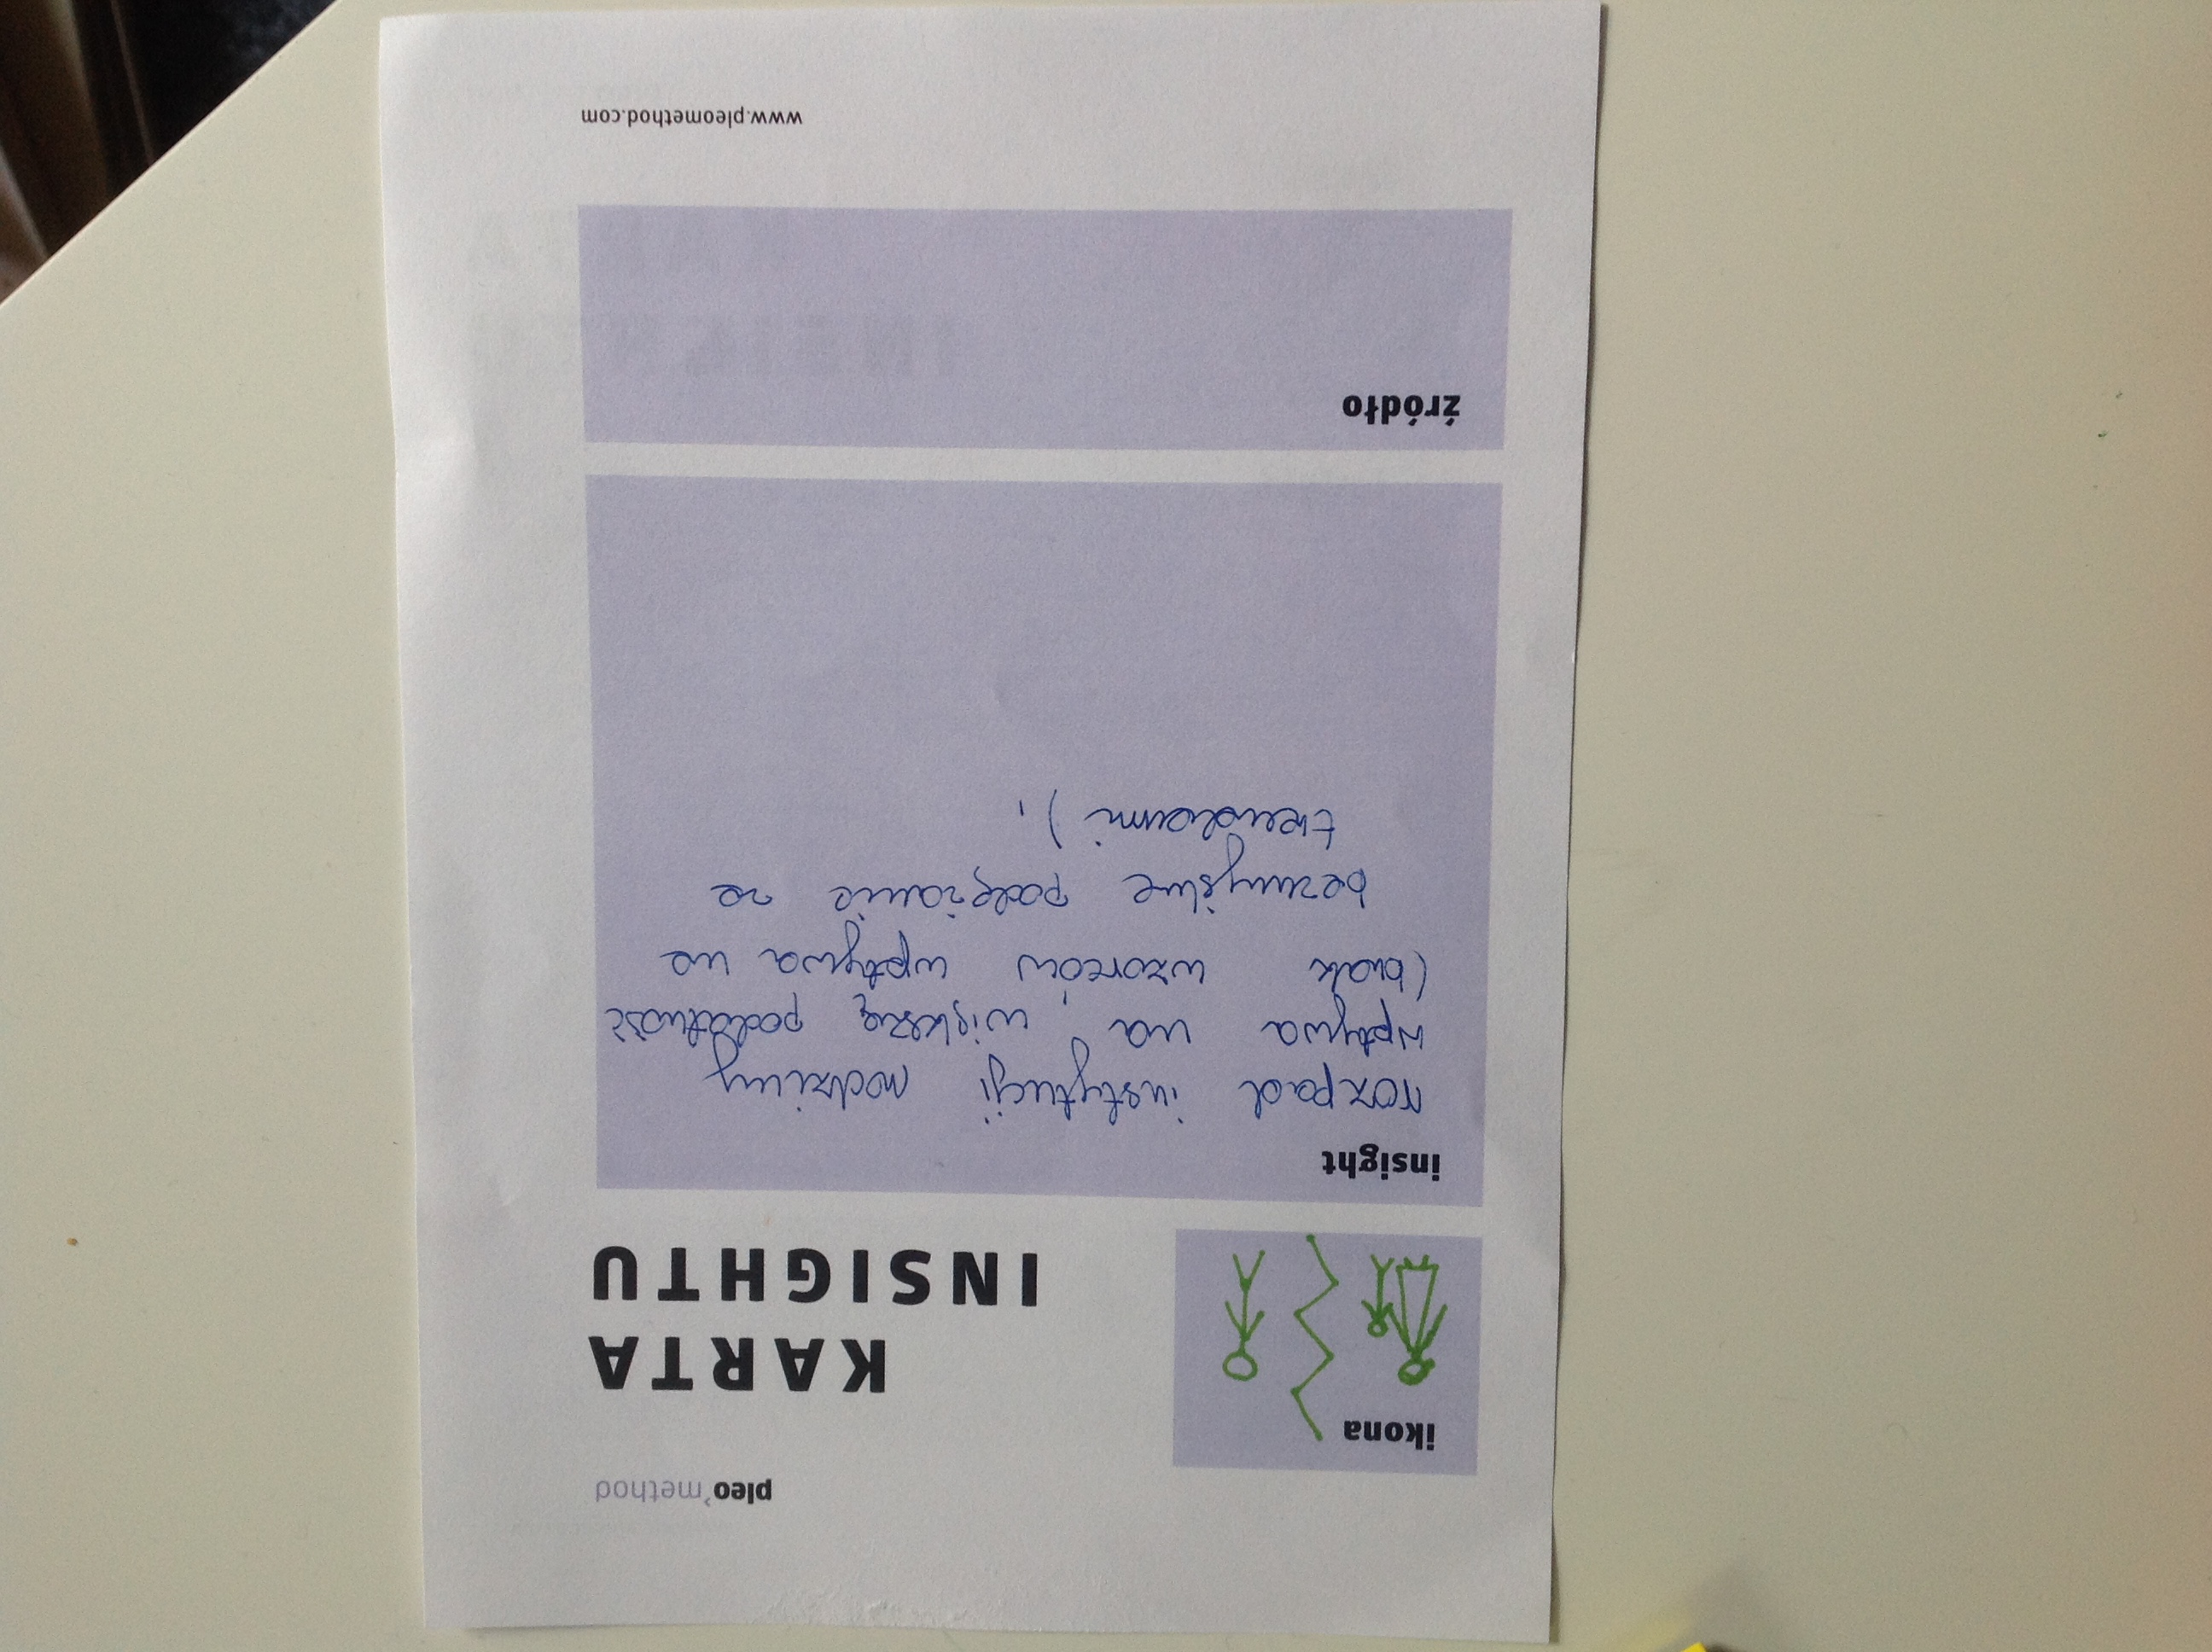 pleo'method
ikona
KARTA
INSIGHTU
insight
rozpad instytucji rodziny
wpływa na większą podatność
(brak wzorców wpływa na
bezmyślne podążanie za
trendami).
źródło
www.pleomethod.com